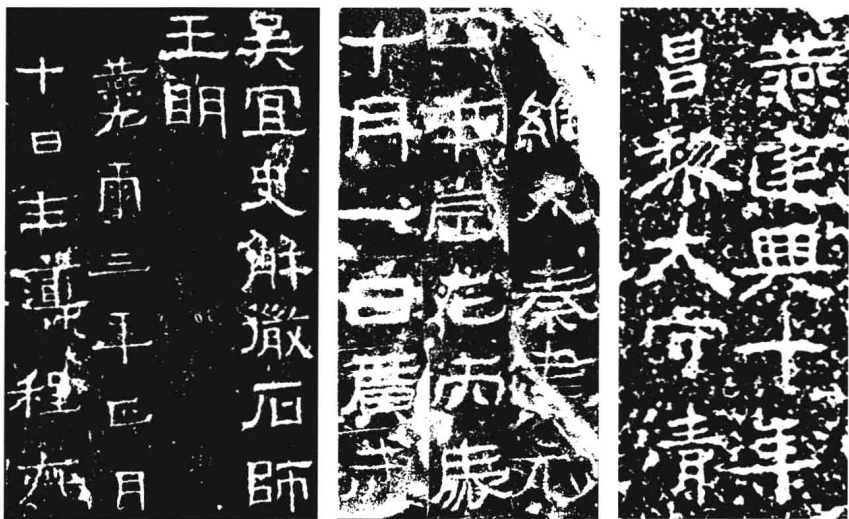 燕建興十年
昌黎太守清
維大秦建元
四年歲在丙辰
十月一日廣武
吳宜史解石師
王明
二年月
十日主簿程